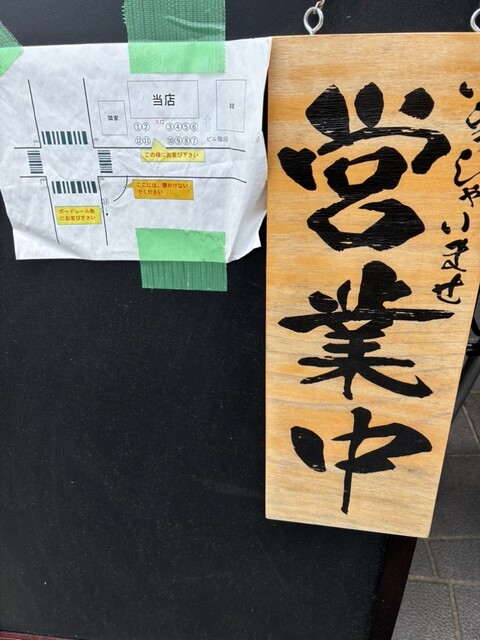 当店
隣家
入口
①② ③④⑤⑥
⑫⑪ ⑩⑨⑧⑦
ビル階段
この様にお並び下さい
ここには、腰かけない
でください
ガードレール側
にお並び下さい
いらっしゃいませ
営業中